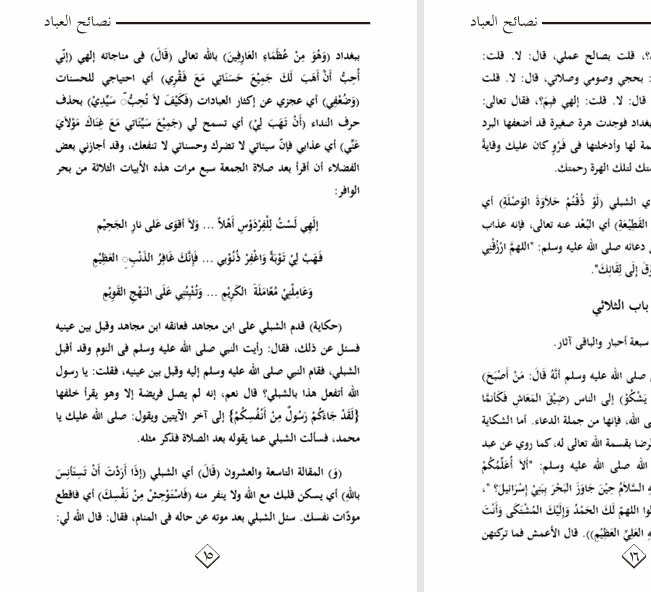 نصائح العباد
ببغداد (وَهُوَ مِنْ عُظَمَاءِ العَارِفِينَ) بالله تعالى (قَالَ) فى مناجاته إلهي (إنّي
أُحِبُّ أَنْ أَهَبَ لَكَ جَمِيعَ حَسَنَاتِي مَعَ فَقْرِي) أي احتياجي للحسنات
(وَضُعْفِي) أي عجزي عن إكثار العبادات (فَكَيْفَ لاَ تُحِبُّ سَيِّدِيْ) بحذف
حرف النداء (أَنْ تَهَبَ لِيْ) أي تسمح لي (جَمِيْعَ سَيِّئَاتي مَعَ غِنَاكَ مَوْلاَيَ
عَنِّي) أي عذابي فإنّ سيئاتي لا تضرك وحسناتي لا تنفعك، وقد أجازني بعض
الفضلاء أن أقرأ بعد صلاة الجمعة سبع مرات هذه الأبيات الثلاثة من بحر
الوافر:
إلَهِي لَسْتُ لِلْفِرْدَوْسِ أَهْلاً ... وَلاَ أَقوَى عَلى نارِ الجَحِيْم
فَهَبْ لِيْ تَوْبَةً وَاغْفِرْ ذُنُوْبي ... فَإِنَّكَ غَافِرُ الذَنْبِ العَظِيْمِ
وَعَامِلْنِيْ مُعَامَلَةَ الكَرِيْمِ ... وَثَبِّتْنِي عَلَى النَهْجِ القَوِيْمِ
(حكاية) قدم الشبلي على ابن مجاهد فعانقه ابن مجاهد وقبل بين عينيه
فسئل عن ذلك، فقال: رأيت النبي صلى الله عليه وسلم فى النوم وقد أقبل
الشبلي، فقام النبي صلى الله عليه وسلم إليه وقبل بين عينيه، فقلت: يا رسول
الله أتفعل هذا بالشبلي؟ قال نعم، إنه لم يصل فريضة إلا وهو يقرأ خلفها
{لَقَدْ جَاءَكُمْ رَسُولٌ مِنْ أَنْفُسِكُمْ} إلى آخر الآيتين ويقول: صلى الله عليك يا
محمد، فسألت الشبلي عما يقوله بعد الصلاة فذكر مثله.
(وَ) المقالة التاسعة والعشرون (قَالَ) أي الشبلي (إذَا أَرَدْتَ أَنْ تَسْتَأْنِسَ
باللهِ) أي يسكن قلبك مع الله ولا ينفر منه (فَاسْتَوْحِشْ مِنْ نَفْسِكَ) أي فاقطع
مودّات نفسك. سئل الشبلي بعد موته عن حاله فى المنام، فقال: قال الله لي:
١٥
نصائح العباد
؟، قلت بصالح عملي، قال: لا. قلت:
: بحجي وصومي وصلاتي، قال: لا. قلت
قال: لا. قلت: إلهي فبِمَ؟، فقال تعالى:
بغداد فوجدت هرة صغيرة قد أضعفها البرد
مة لها وأدخلتها فى فَرْوٍ كان عليك وقايةً
متك لتلك الهرة رحمتك.
ي الشبلي (لَوْ ذُقْتُمْ حَلاَوَةَ الوَصْلَةِ) أي
القَطِيْعَةِ) أي البُعْد عنه تعالى، فإنه عذاب
دعائه صلى الله عليه وسلم: "اللهمَّ ارْزُقْنِي
قَ إِلَى لِقَائِكَ".
باب الثلاثي
سبعة أخبار والباقى آثار.
صلى الله عليه وسلم أنَّهُ قَالَ: مَنْ أَصْبَحَ)
يَشْكُوْ) إلى الناس (ضِيْقَ المَعَاشِ فَكَأنَمَّا
ى الله، فإنها من جملة الدعاء. أما الشكاية
لرضا بقسمة الله تعالى له، كما روي عن عبد
الله صلى الله عليه وسلم: "أَلاَ أُعَلِّمُكُمْ
هِ السَّلاَمُ حِيْنَ جَاوَزَ البَحْرَ بِبَنِيْ إِسْرَائِيلَ؟ "،
لوا اللهمّ لَكَ الحَمْدُ وَإِلَيْكَ المُشْتَكَى وَأَنْتَ
هِ العَلِيِّ العَظِيْمِ)). قال الأعمش فما تركتهن
١٦